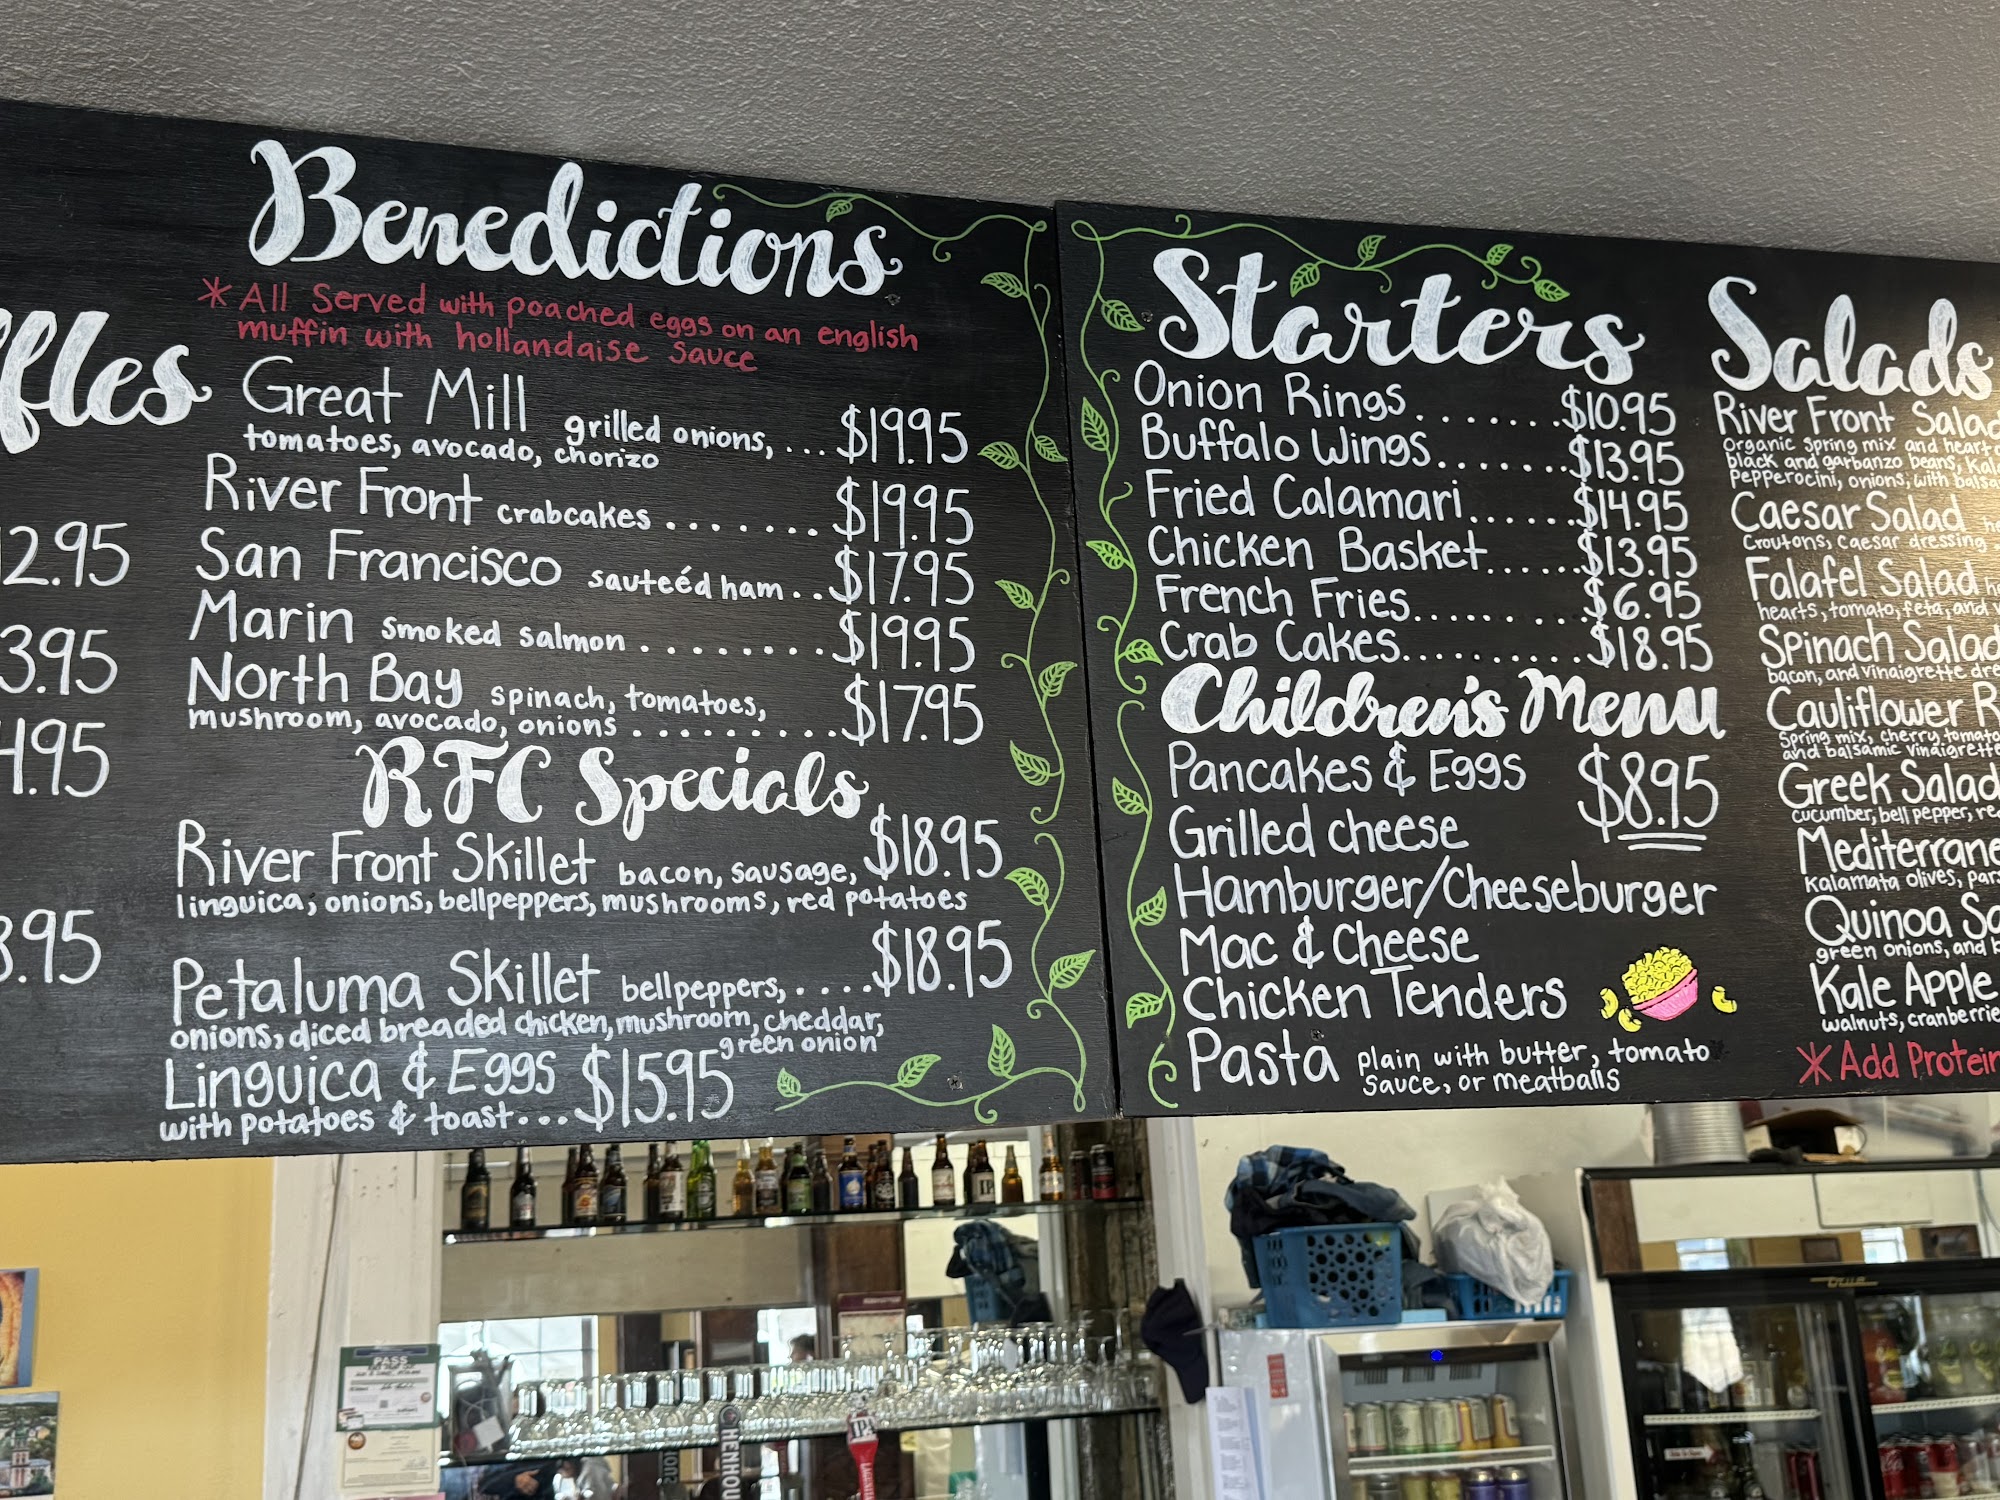 ffles
12.95
3.95
4.95
8.95
Benedictions
* All Served with poached eggs on an english
muffin with hollandaise sauce
Great Mill grilled onions, ... $19.95
tomatoes, avocado, chorizo
River Front crabcakes ........ $19.95
San Francisco sauteéd ham .. $17.95
Marin smoked salmon ......... $19.95
North Bay spinach, tomatoes, $17.95
mushroom, avocado, onions .........
RFC Specials
River Front Skillet bacon, sausage, $18.95
linguica, onions, bellpeppers, mushrooms, red potatoes
Petaluma Skillet bellpeppers, .... $18.95
onions, diced breaded chicken, mushroom, cheddar,
green onion
Linguica & Eggs $15.95
with potatoes & toast...
Starters
Onion Rings ....... $10.95
Buffalo Wings ....... $13.95
Fried Calamari ...... $14.95
Chicken Basket ...... $13.95
French Fries ......... $6.95
Crab Cakes .......... $18.95
Children's Menu
Pancakes & Eggs $8.95
Grilled cheese
Hamburger/Cheeseburger
Mac & Cheese
Chicken Tenders
Pasta plain with butter, tomato
sauce, or meatballs
Salads
River Front Salad
Organic spring mix and heart
black and garbanzo beans, Kal
Pepperocini, onions, with balsa
Caesar Salad
Croutons, Caesar dressing
Falafel Salad
hearts, tomato, feta, and
Spinach Salad
bacon, and vinaigrette dre
Cauliflower R
Spring mix, cherry tomato
and balsamic vinaigrette
Greek Salad
cucumber, bell pepper, re
Mediterrane
Kalamata olives, pars
Quinoa Sa
green onions, and
Kale Apple
walnuts, cranberrie
* Add Protein
PASS
IPA
true